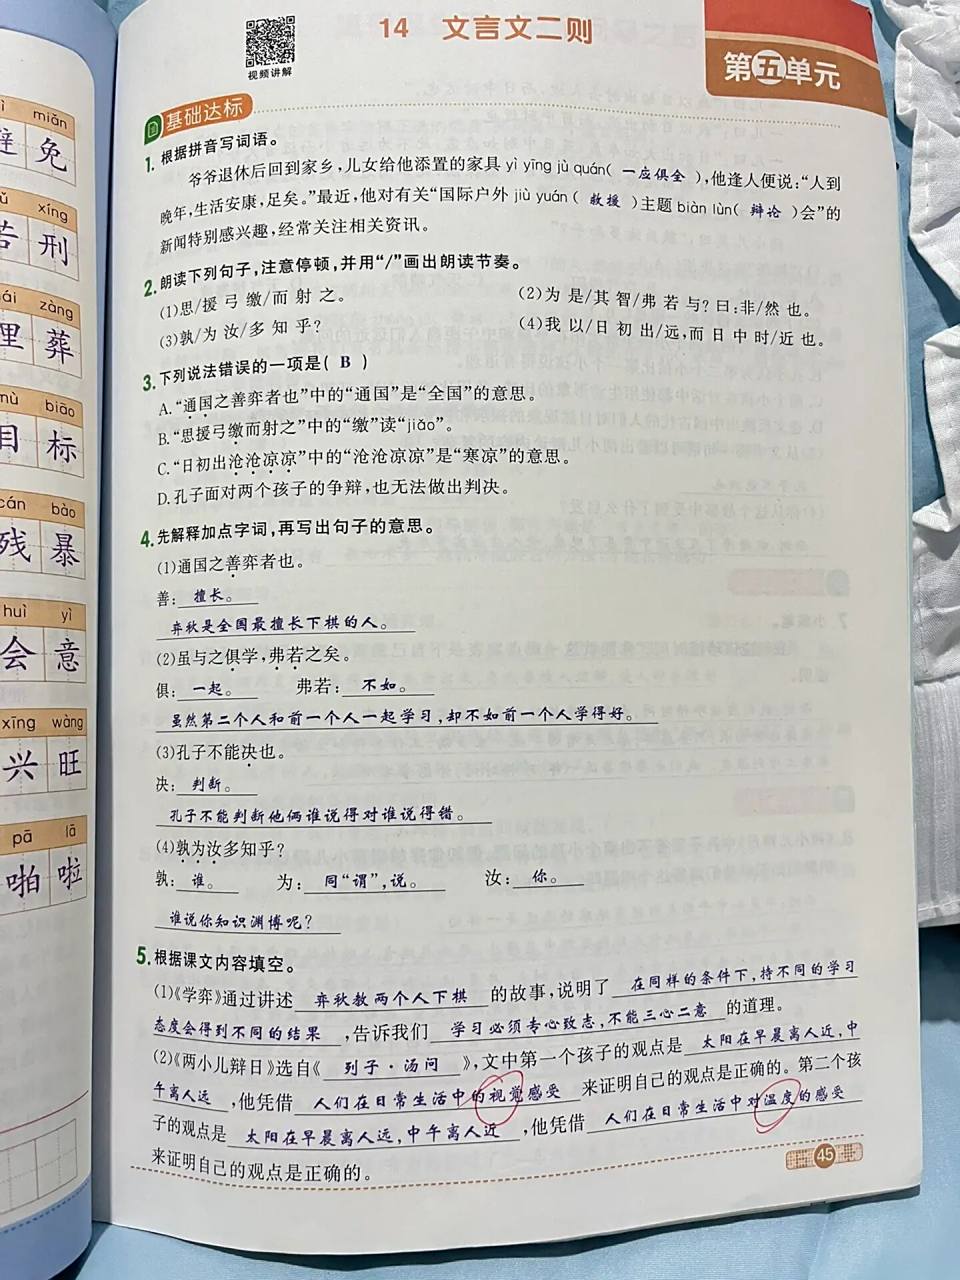 14 文言文二则
视频讲解
第五单元
基础达标
1. 根据拼音写词语。
爷爷退休后回到家乡,儿女给他添置的家具 yì yīng jù quán( 一应俱全 ),他逢人便说:“人到
晚年,生活安康,足矣。”最近,他对有关“国际户外 jiù yuán( 救援 )主题 biàn lùn( 辩论 )会”的
新闻特别感兴趣,经常关注相关资讯。
2. 朗读下列句子,注意停顿,并用“/”画出朗读节奏。
(1)思/援 弓 缴/而 射 之。 (2)为 是/其 智/弗 若 与?曰:非/然 也。
(3)孰/为 汝/多 知 乎? (4)我 以/日 初 出/远,而 日 中 时/近 也。
3. 下列说法错误的一项是( B )
A.“通国之善弈者也”中的“通国”是“全国”的意思。
B.“思援弓缴而射之”中的“缴”读“jiǎo”。
C.“日初出沧沧凉凉”中的“沧沧凉凉”是“寒凉”的意思。
D.孔子面对两个孩子的争辩,也无法做出判决。
4. 先解释加点字词,再写出句子的意思。
(1)通国之善弈者也。
善: 擅长。
弈秋是全国最擅长下棋的人。
(2)虽与之俱学,弗若之矣。
俱: 一起。 弗若: 不如。
虽然第二个人和前一个人一起学习,却不如前一个人学得好。
(3)孔子不能决也。
决: 判断。
孔子不能判断他俩谁说得对谁说得错。
(4)孰为汝多知乎?
孰: 谁。 为: 同“谓”,说。 汝: 你。
谁说你知识渊博呢?
5. 根据课文内容填空。
(1)《学弈》通过讲述 弈秋教两个人下棋 的故事,说明了 在同样的条件下,持不同的学习
态度会得到不同的结果 ,告诉我们 学习必须专心致志,不能三心二意 的道理。
(2)《两小儿辩日》选自《 列子·汤问 》,文中第一个孩子的观点是 太阳在早晨离人近,中
午离人远 ,他凭借 人们在日常生活中的视觉感受 来证明自己的观点是正确的。第二个孩
子的观点是 太阳在早晨离人远,中午离人近 ,他凭借 人们在日常生活中对温度的感受
来证明自己的观点是正确的。
45
miǎn
避 免
xíng
苦 刑
zàng
埋 葬
mù biāo
目 标
cán bào
残 暴
huì yì
会 意
xīng wàng
兴 旺
pā lā
啪 啦